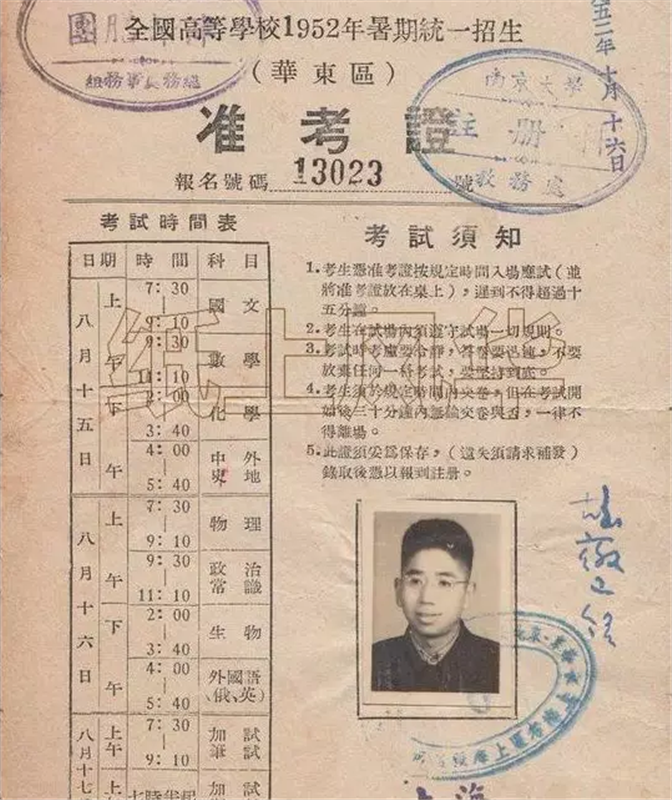 全國高等學校1952年暑期統一招生
（華東區）
准考證
報名號碼 13023 號
南京大學
註册
教務處
五二年十月十六日
考試時間表
日期 時間 科目
八月十五日 上午 7:30 — 9:10 國文
9:30 — 11:10 數學
下午 2:00 — 3:40 化學
4:00 — 5:40 中外史地
八月十六日 上午 7:30 — 9:10 物理
9:30 — 11:10 政治常識
下午 2:00 — 3:40 生物
4:00 — 5:40 外國語（俄、英）
八月十七 上午 7:30 — 9:10 加試筆試
上 十時半起 加試
考試須知
1.考生憑准考證按規定時間入場應試（並
將准考證放在桌上），遲到不得超過十
五分鐘。
2.考生在試場內須遵守試場一切規則。
3.考試時考慮要冷靜，答卷要迅速，不要
放棄任何一科考試，要堅持到底。
4.考生須於規定時間內交卷，但在考試開
始後三十分鐘內無論交卷與否，一律不
得離場。
5.此證須妥爲保存，（遺失須請求補發）
錄取後憑以報到註冊。
上海